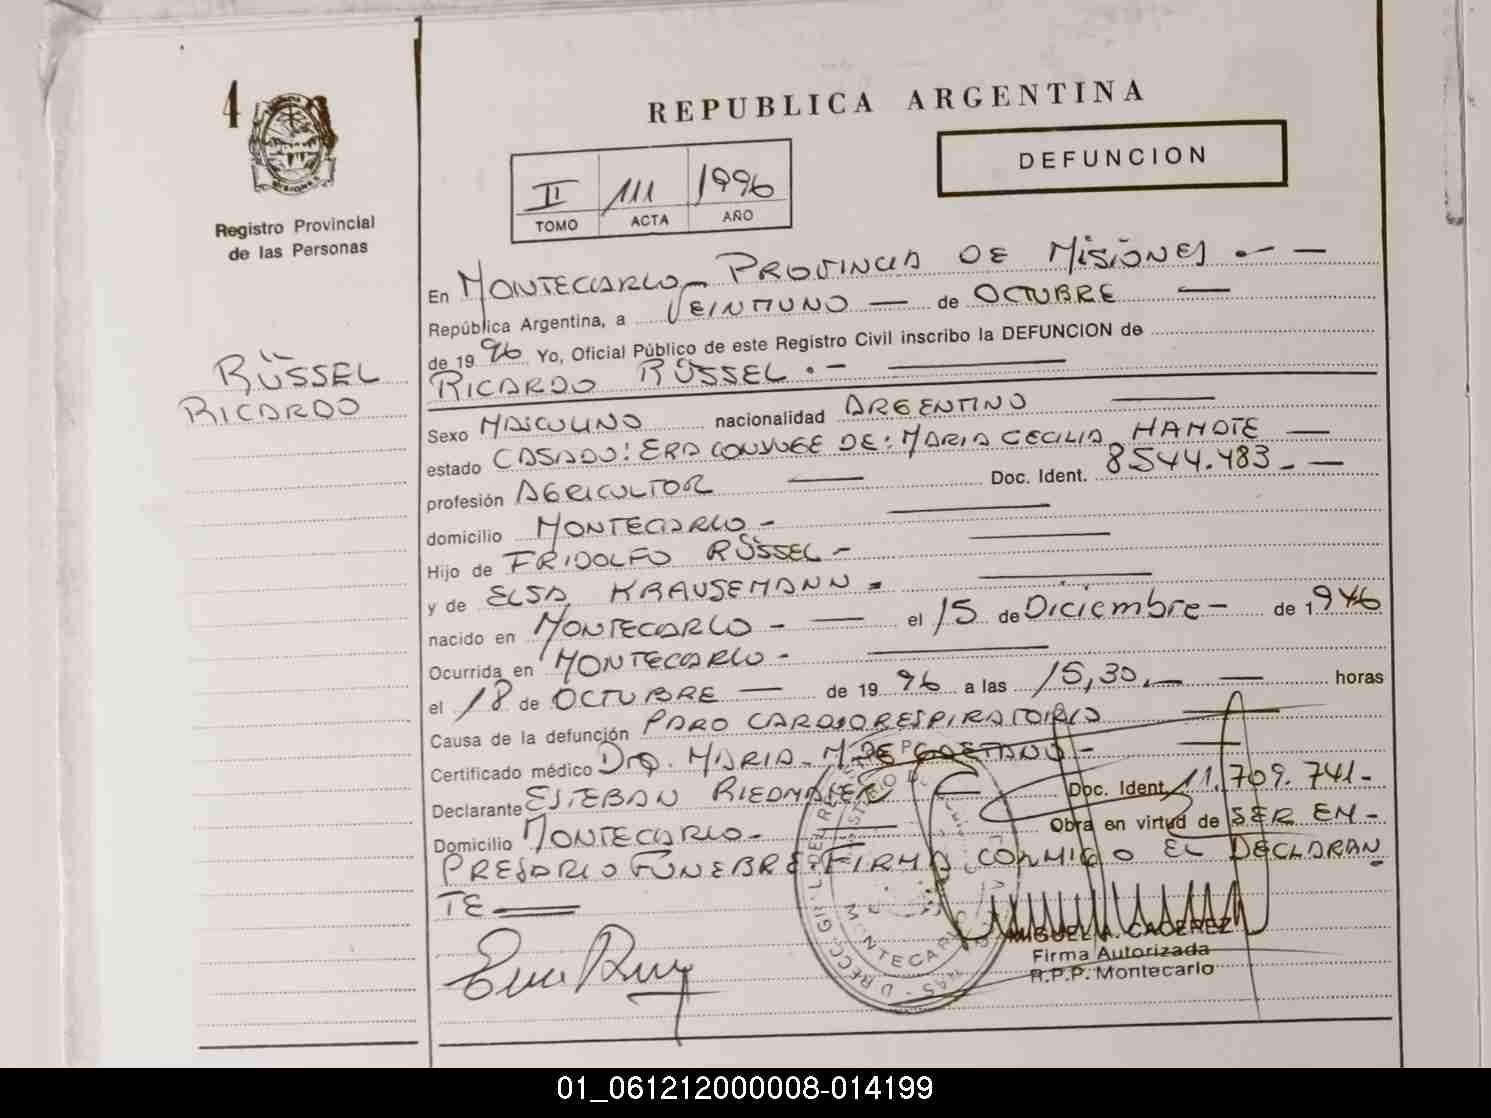 4
REPUBLICA ARGENTINA
DEFUNCION
II 111 1996
TOMO ACTA AÑO
Registro Provincial
de las Personas
RÜSSEL
RICARDO
En MONTECARLO - PROVINCIA DE MISIONES . - -
República Argentina, a VEINTIUNO — de OCTUBRE —
de 1996 Yo, Oficial Público de este Registro Civil inscribo la DEFUNCION de
RICARDO RÜSSEL . - —
Sexo MASCULINO nacionalidad ARGENTINO —
estado CASADO: ERA CONYUGE DE: MARIA CECILIA HAMOTE —
profesión AGRICULTOR — Doc. Ident. 8544.483 . - —
domicilio MONTECARLO - —
Hijo de FRIDOLFO RÜSSEL - —
y de ELSA KRAUSEMANN - —
nacido en MONTECARLO - — el 15 de Diciembre - de 1946
Ocurrida en MONTECARLO - —
el 18 de OCTUBRE — de 1996 a las 15,30 . - — horas
Causa de la defunción PARO CARDIORESPIRATORIO —
Certificado médico Dra. MARIA M. DE GAETANO - —
Declarante ESTEBAN RIEDMAIER Doc. Ident. 11.709.741 -
Domicilio MONTECARLO - — Obra en virtud de SER EM-
PRESARIO FUNEBRE. FIRMA CONMIGO EL DECLARAN
TE —
MONTECARLO
MIGUEL A. CACEREZ
Firma Autorizada
R.P.P. Montecarlo
01_061212000008-014199